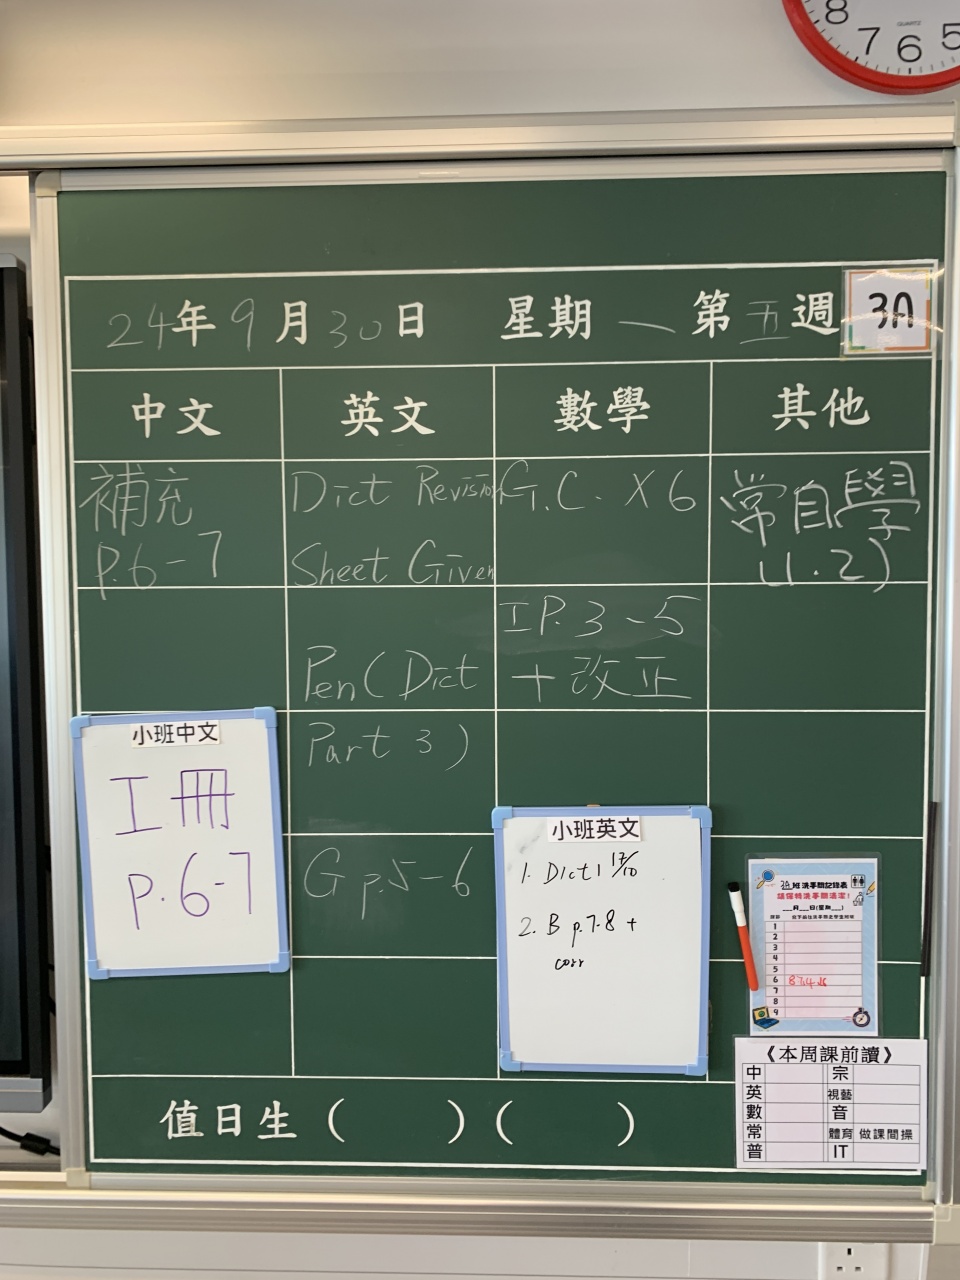 8 7 6 5
QUARTZ
24年9月30日 星期一 第五週 3A
中文 英文 數學 其他
補充
p.6-7
Dict Revision
Sheet Given
Pen (Dict
Part 3)
G p.5-6
G.C. X6
工P.3-5
+改正
常自學
(1.2)
小班中文
工冊
p.6-7
小班英文
1. Dict 1 17/10
2. B p.7-8 +
corr
3A班洗手間記錄表
請保持洗手間清潔!
__月__日(星期__)
1
2
3
4
5
6
7
8
9
《本周課前讀》
中 宗
英 視藝
數 音
常 體育 做課間操
普 IT
值日生 ( ) ( )